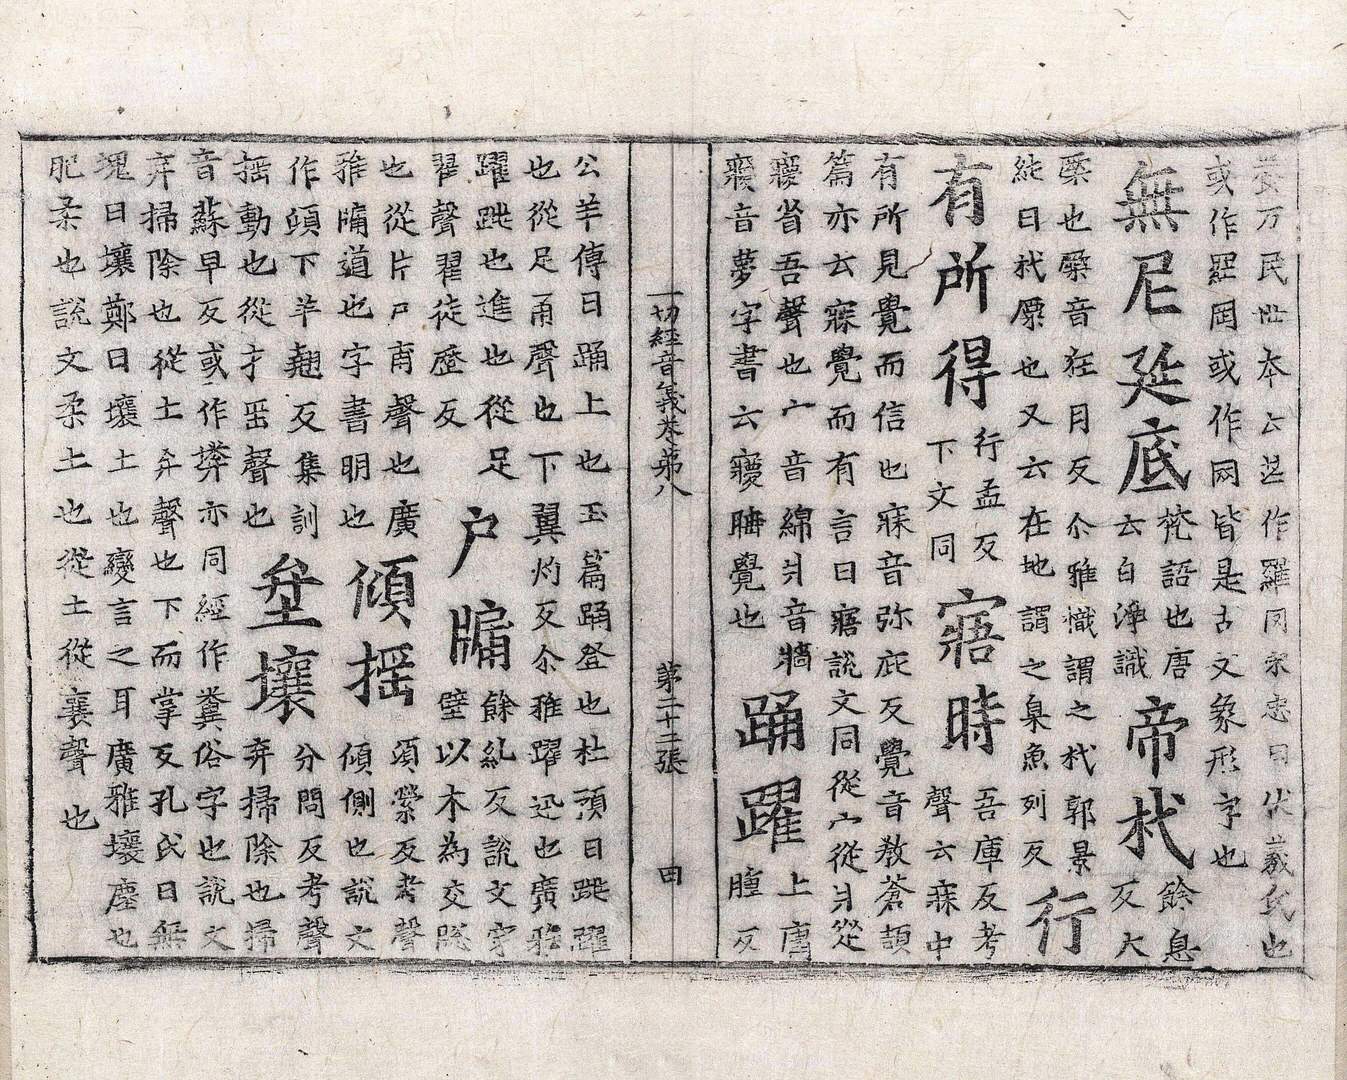 養万民世本云芒作羅罔 曰伏羲氏也
或作罜罔或作网皆是古文象形字也
無尼延底
梵語也唐
云白淨識
帝杙
餘息
反大
橜也橜音狂月反尒雅樴謂之杙郭景
純曰杙橜也又云在地謂之臬魚列反
行
有所得
行孟反
下文同
寤時
吾庫反考
聲云寐中
有所見覺而信也寐音弥庇反覺音教蒼頡
篇亦云寐覺而有言曰寤說文同從宀從爿從
㝱省吾聲也宀音綿爿音牆
㝱音夢字書云㝱 覺也
踊躍
上庸
腫反
一切經音義卷第八 第二十二張 田
公羊傳曰踊上也玉篇踊登也杜預曰跳躍
也從足甬聲也下翼灼反尒雅躍迅也廣雅
躍跳也進也從足
翟聲翟徒歷反
户牖
餘糺反說文穿
壁以木為交䆫
也從片户甫聲也廣
雅牖道也字書明也
傾搖
頃縈反考聲
傾側也說文
作頃下羊翹反集訓
搖動也從才䍃聲也
坌壤
分問反考聲
弃掃除也掃
音蘇早反或作㙼亦同經作糞俗字也說文
弃掃除也從土弁聲也下而掌反孔氏曰無
塊曰壤鄭曰壤土也變言之耳廣雅壤塵也
肥柔也說文柔土也從土從襄聲也